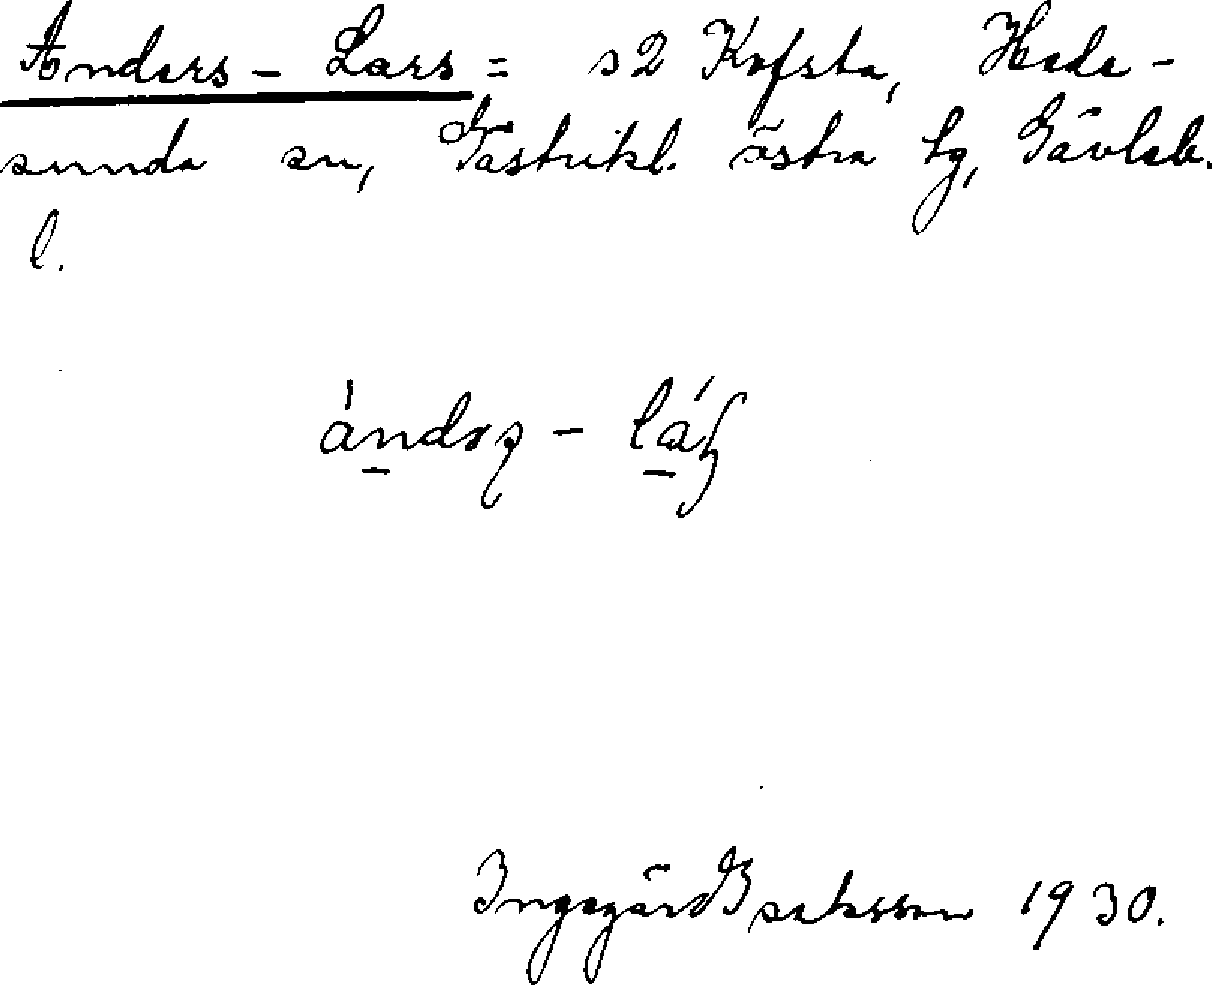 Anders-Lars = s2 Kofsta, Hede-
sunda sn, Gästrikl. östra tg, Gävleb.
l.
Ingegärd Isaksson 1930.